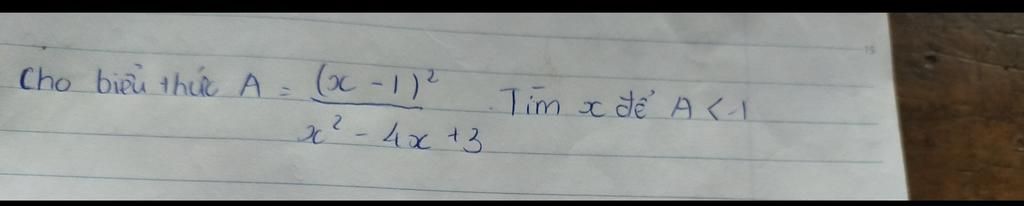 Cho biểu thức A = (x - 1)² / x² - 4x + 3 . Tìm x để A < -1